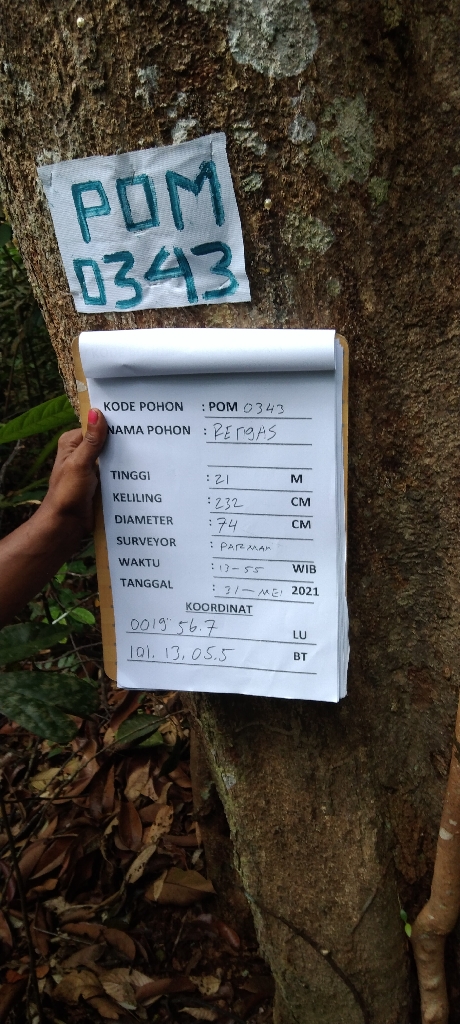 POM
0343
KODE POHON : POM 0343
NAMA POHON : RENGAS
TINGGI : 21 M
KELILING : 232 CM
DIAMETER : 74 CM
SURVEYOR : PARMAN
WAKTU : 13-55 WIB
TANGGAL : 31-MEI 2021
KOORDINAT
0019 56.7 LU
101. 13. 05.5 BT